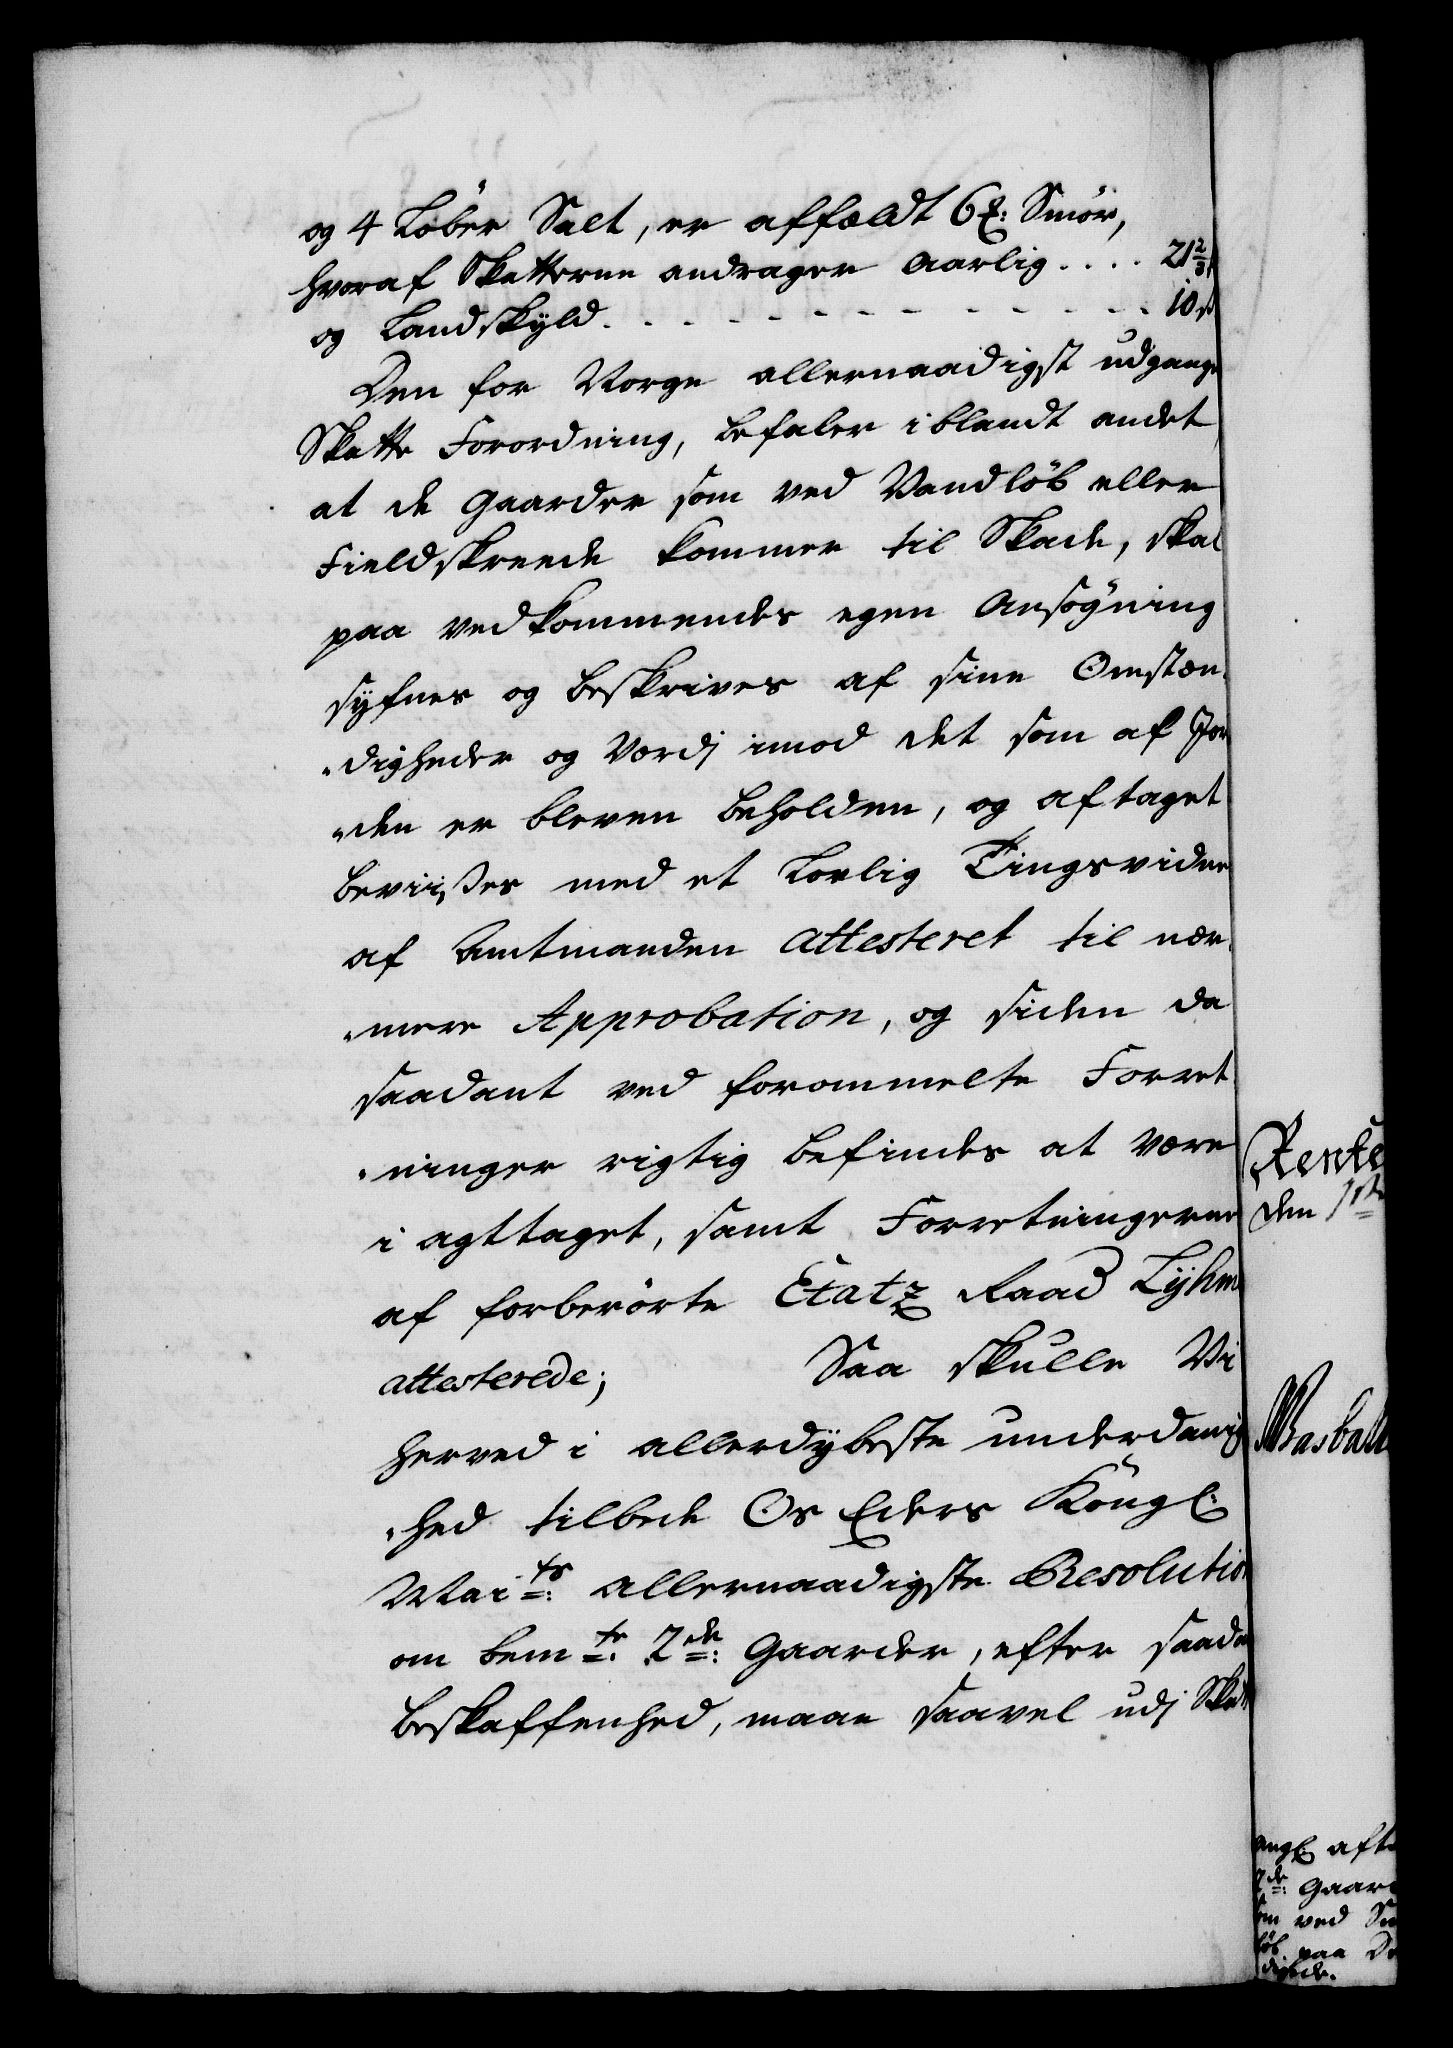 og 4 Løber Salt, er affældt 6 ℔: Smør,
hvoraf Skatterne andrager aarlig .... 21 2/3
og Landskyld. - - - - - - - - - - - 10 ß
Den for Norge allernaadigst udgangne
Skatte Forordning, befaler iblandt andet
at de Gaarder som ved Vandløb eller
Fieldskreede kommer til Skade, skal
paa vedkommendes egen Ansøgning
syfnes og beskrives af sine Omstæn,
„digheder og Værdj imod det som af Jor
„den er bleven beholden, og aftaget
beviißes med et Lovlig Tingsvidne
af Amtmanden attesteret til nær,
„mere Approbation, og siden da
saadant ved forommelte Forret
„ninger rigtig befindes at være
i agttaget, samt Forretningerne
af forberørte Etatz Raad Lyhm
attesterede; Saa skulle Vi
herved i allerdybeste underdanig
„hed tilbede Os Eders Köngl:
Mai ts: allernaadigste Resolution
om bem te: 2de: Gaarder, efter saadan
beskaffenhed, maae saavel udj Skatt
Rente
den 1ste
Basball
ang: afta
2de: Gaard
som ved
løb paa